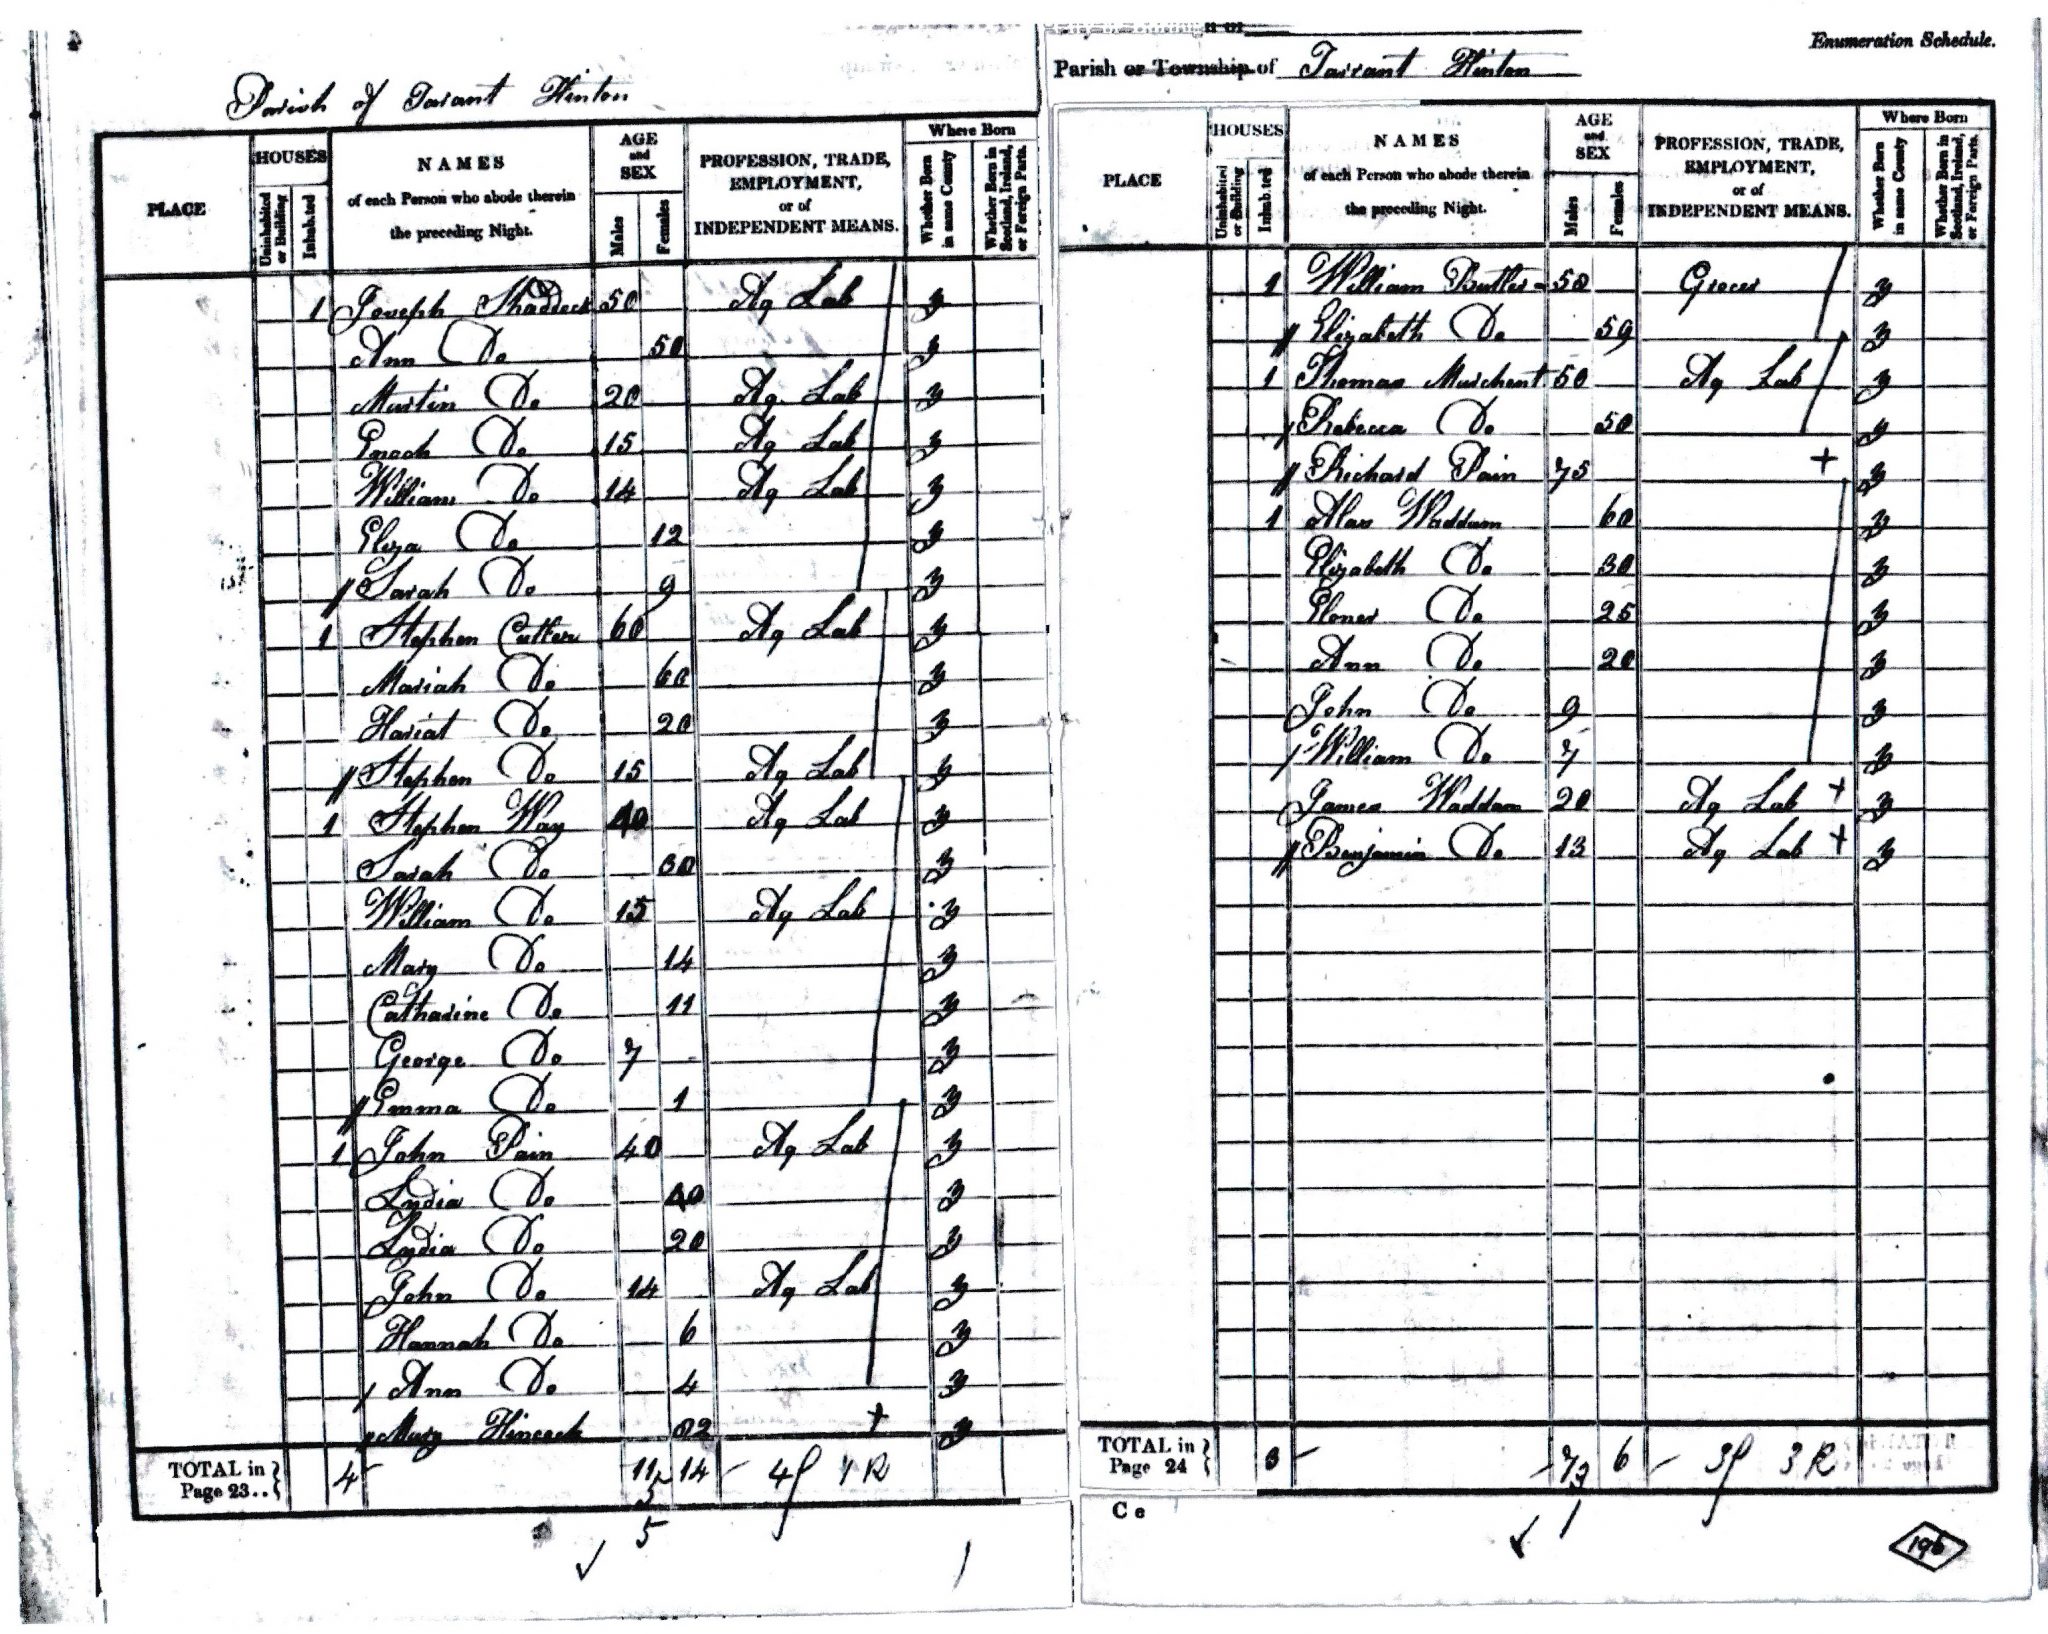 Parish of Tarant Hinton
PLACE
HOUSES
Uninhabited or Building
Inhabited
NAMES
of each Person who abode therein
the preceding Night.
AGE
and
SEX
Males
Females
PROFESSION, TRADE,
EMPLOYMENT,
or of
INDEPENDENT MEANS.
Where Born
Whether Born in same County
Whether Born in Scotland, Ireland, or Foreign Parts.
1 Joseph Shaddock 50 Ag Lab y
Ann Do 50 y
Martin Do 20 Ag Lab y
Enoch Do 15 Ag Lab y
William Do 14 Ag Lab y
Eliza Do 12 y
// Sarah Do 9 y
1 Stephen Cutler 60 Ag Lab y
Mariah Do 60 y
Hariat Do 20 y
// Stephen Do 15 Ag Lab y
1 Stephen Way 40 Ag Lab y
Sarah Do 30 y
William Do 15 Ag Lab y
Mary Do 14 y
Catharine Do 11 y
George Do 7 y
// Emma Do 1 y
1 John Pain 40 Ag Lab y
Lydia Do 40 y
Lydia Do 20 y
John Do 14 Ag Lab y
Hannah Do 6 y
/ Ann Do 4 y
Mary + y
TOTAL in Page 23.. } 4 11 14
5
Enumeration Schedule.
Parish or Township of Tarrant Hinton
PLACE
HOUSES
Uninhabited or Building
Inhabited
NAMES
of each Person who abode therein
the preceding Night.
AGE
and
SEX
Males
Females
PROFESSION, TRADE,
EMPLOYMENT,
or of
INDEPENDENT MEANS.
Where Born
Whether Born in same County
Whether Born in Scotland, Ireland, or Foreign Parts.
1 William Butler 50 Grocer y
// Elizabeth Do 59 y
1 Thomas Murchent 50 Ag Lab y
/ Rebecca Do 50 y
// Richard Pain 75 + y
1 Waddum 60 y
Elizabeth Do 30 y
Eloner Do 25 y
Ann Do 20 y
John Do 9 y
/ William Do 7 y
James Waddam 20 Ag Lab + y
// Benjamin Do 13 Ag Lab + y
TOTAL in Page 24 } 3 7 6 3 R
C e
196